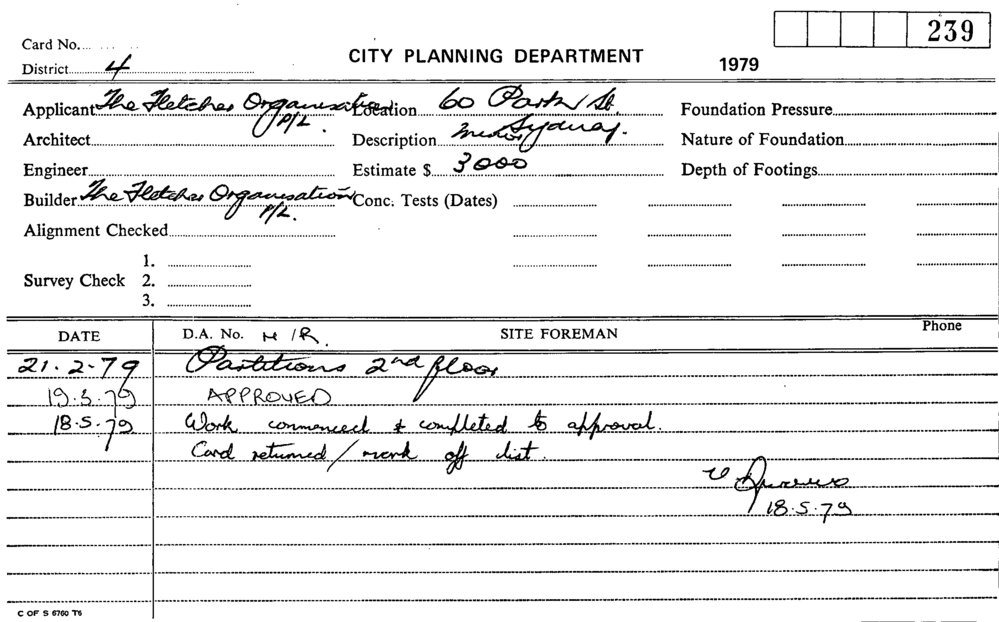 239
Card No.
CITY PLANNING DEPARTMENT 1979
District 4
Applicant The Fletcher Organisation P/L. Location 60 Park St. Sydney. Foundation Pressure
Architect Description Nature of Foundation
Engineer Estimate $ 3000 Depth of Footings
Builder The Fletcher Organisation P/L. Conc. Tests (Dates)
Alignment Checked
Survey Check 1.
2.
3.
DATE D.A. No. N/R. SITE FOREMAN Phone
21.2.79 Partitions 2nd floor
19.3.79 APPROVED
18.5.79 Work commenced & completed to approval.
Card returned / mark off list.
18.5.79
C OF S 6760 T6